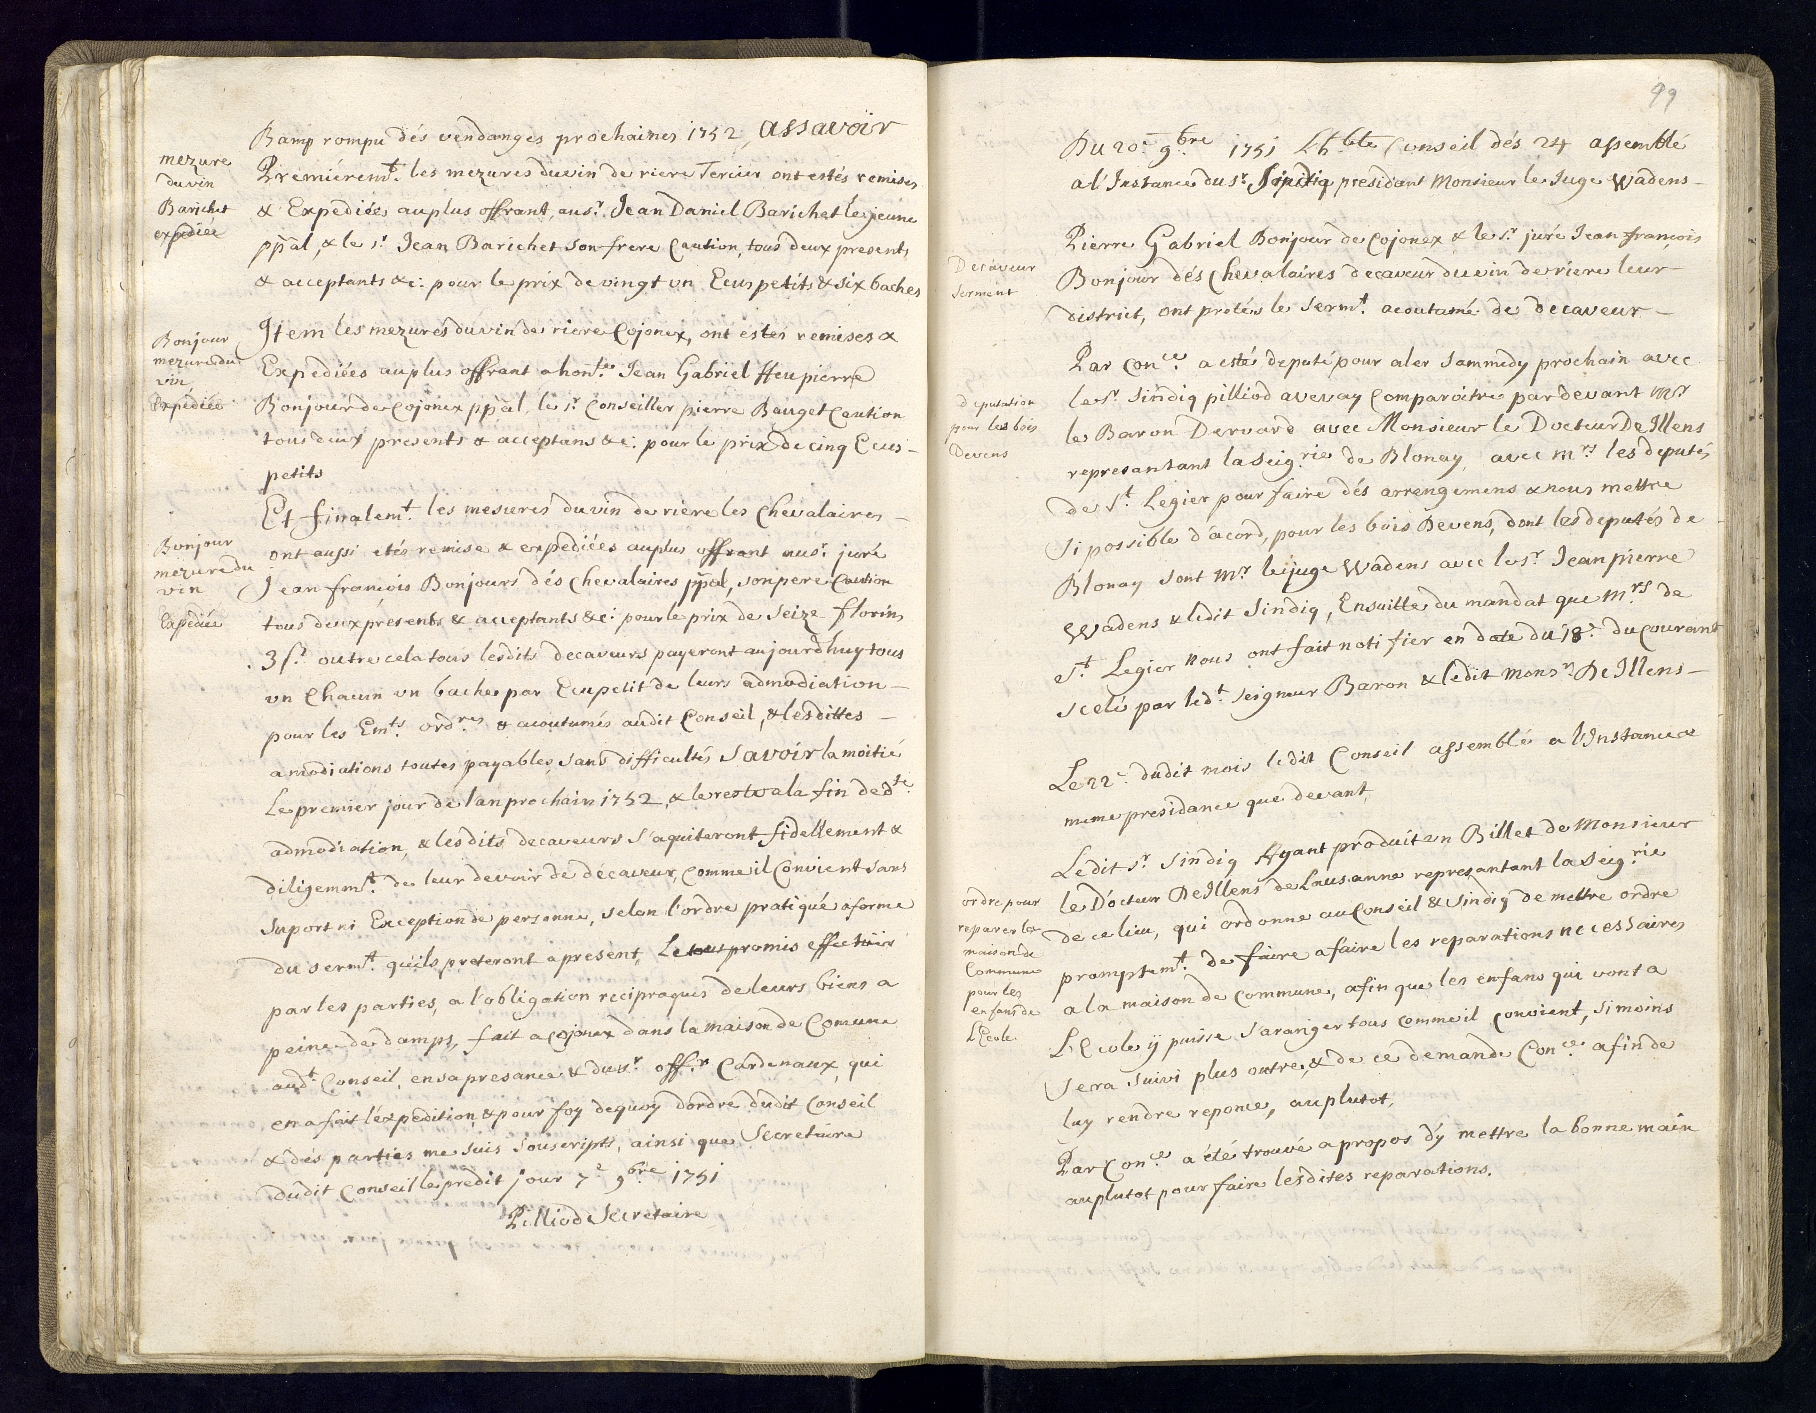 Bamp rompu dés vendanges prochaines 1752, assavoir
mezure
du vin
Barichet
expediée
Premiérem.t les mezures du vin de riere Tercier ont estés remises
& Expediées au plus offrant, au s.r Jean Daniel Barichet le jeune
ppāl, & le s.r Jean Barichet son frere Caution, tous deux presents
& acceptants &c: pour le prix de vingt un Ecus petits & six baches
Bonjour
mezure du
vin
Expediée
Item les mezures du vin de riere Cojonex, ont estés remises &
Expediées au plus offrant a hon.te Jean Gabriel ffeu pierre
Bonjour de Cojonex ppāl, le s.r Conseiller pierre Bauget Caution
tous deux presents & acceptans &c: pour le prix de cinq Ecus
petits
Bonjour
mezure du
vin
Expediée
Et finalem.t les mesures du vin de riére les Chevalaires
ont aussi etés remise & expediées au plus offrant au s.r juré
Jean françois Bonjours dés Chevalaires ppāl, son pere Caution
tous deux presents & acceptants &c: pour le prix de Seize florins
3 s.r outre cela tous lesdits decaveurs payeront aujourd'huy tous
un Chacun un baches par Ecu petit de leurs admodiation
pour les Em.ts ord.res & acoutumés audit Conseil, & lesdittes
amodiations toutes payables, sans difficultés Savoir la moitié
Le premier jour de l'an prochain 1752, & le reste a la fin de d.te
admodiation, & lesdits decaveurs s'aquiteront fidellement &
diligemm.t de leur devoir de décaveur, comme il Convient sans
suport ni Exception de personne, selon l'ordre pratiqué a forme
du serm.t qu'ils preteront a present, Le tout promis effectüer
par les parties, a l'obligation reciproques de leurs biens a
peine de damps, fait a Cojonex dans la maison de Comune
aud.t Conseil, en sa presance & du s.r off.r Cardenaux, qui
en a fait l'expedition, & pour foy dequoy d'ordre dudit Conseil
& dés parties me suis souscript, ainsi que Secretaire
dudit Conseil le predit jour 7.e 9.bre 1751
Pilliod Secretaire
99
Du 20.e 9.bre 1751 L'h.ble Conseil dés 24 assemblé
a l'Instance du s.r Sindiq, presidant Monsieur le Juge Wadens
Decaveur
serment
Pierre Gabriel Bonjour de Cojonex & le s.r juré Jean françois
Bonjour dés Chevalaires decaveur du vin de riere leur
district, ont pretés le serm.t acoutumé de decaveur
deputation
pour les bois
Devens
Par Con.ce a esté deputé pour aler sammedy prochain avec
le s.r Sindiq pilliod a vevay Comparoitre par devant mr
le Baron Dervard avec Monsieur le Docteur De Illens
represantant la seig.rie de Blonay, avec m.rs les deputés
de S.t Legier pour faire dés arrengemens & nous mettre
Si possible d'acord, pour les bois Devens, dont les deputés de
Blonay sont m.r le juge Wadens avec le s.r Jean pierre
Wadens & ledit Sindiq, Ensuitte du mandat que m.rs de
S.t Legier nous ont fait notifier en date du 18.e du Courant
scelé par led.t seigneur Baron & ledit mons.r De Illens
Le 22.e dudit mois ledit Conseil assemblé a l'Instance &
meme presidance que devant,
ordre pour
reparer la
maison de
Commune
pour les
enfans de
L'Ecole
Ledit s.r Sindiq Ayant produit un Billet de Monsieur
le Docteur De Illens de Lausanne represantant la seig.rie
de ce lieu, qui ordonne au Conseil & Sindiq de mettre ordre
promptem.t de faire a faire les reparations necessaires
a la maison de commune, afin que les enfans qui vont a
L'Ecole ÿ puisse s'aranger tous comme il convient, si moins
Sera suivi plus outre, & de ce demande Con.ce afin de
luy rendre reponce, au plutot,
Par Con.ce a été trouvé a propos d'y mettre la bonne main
au plutot pour faire lesdites reparations.